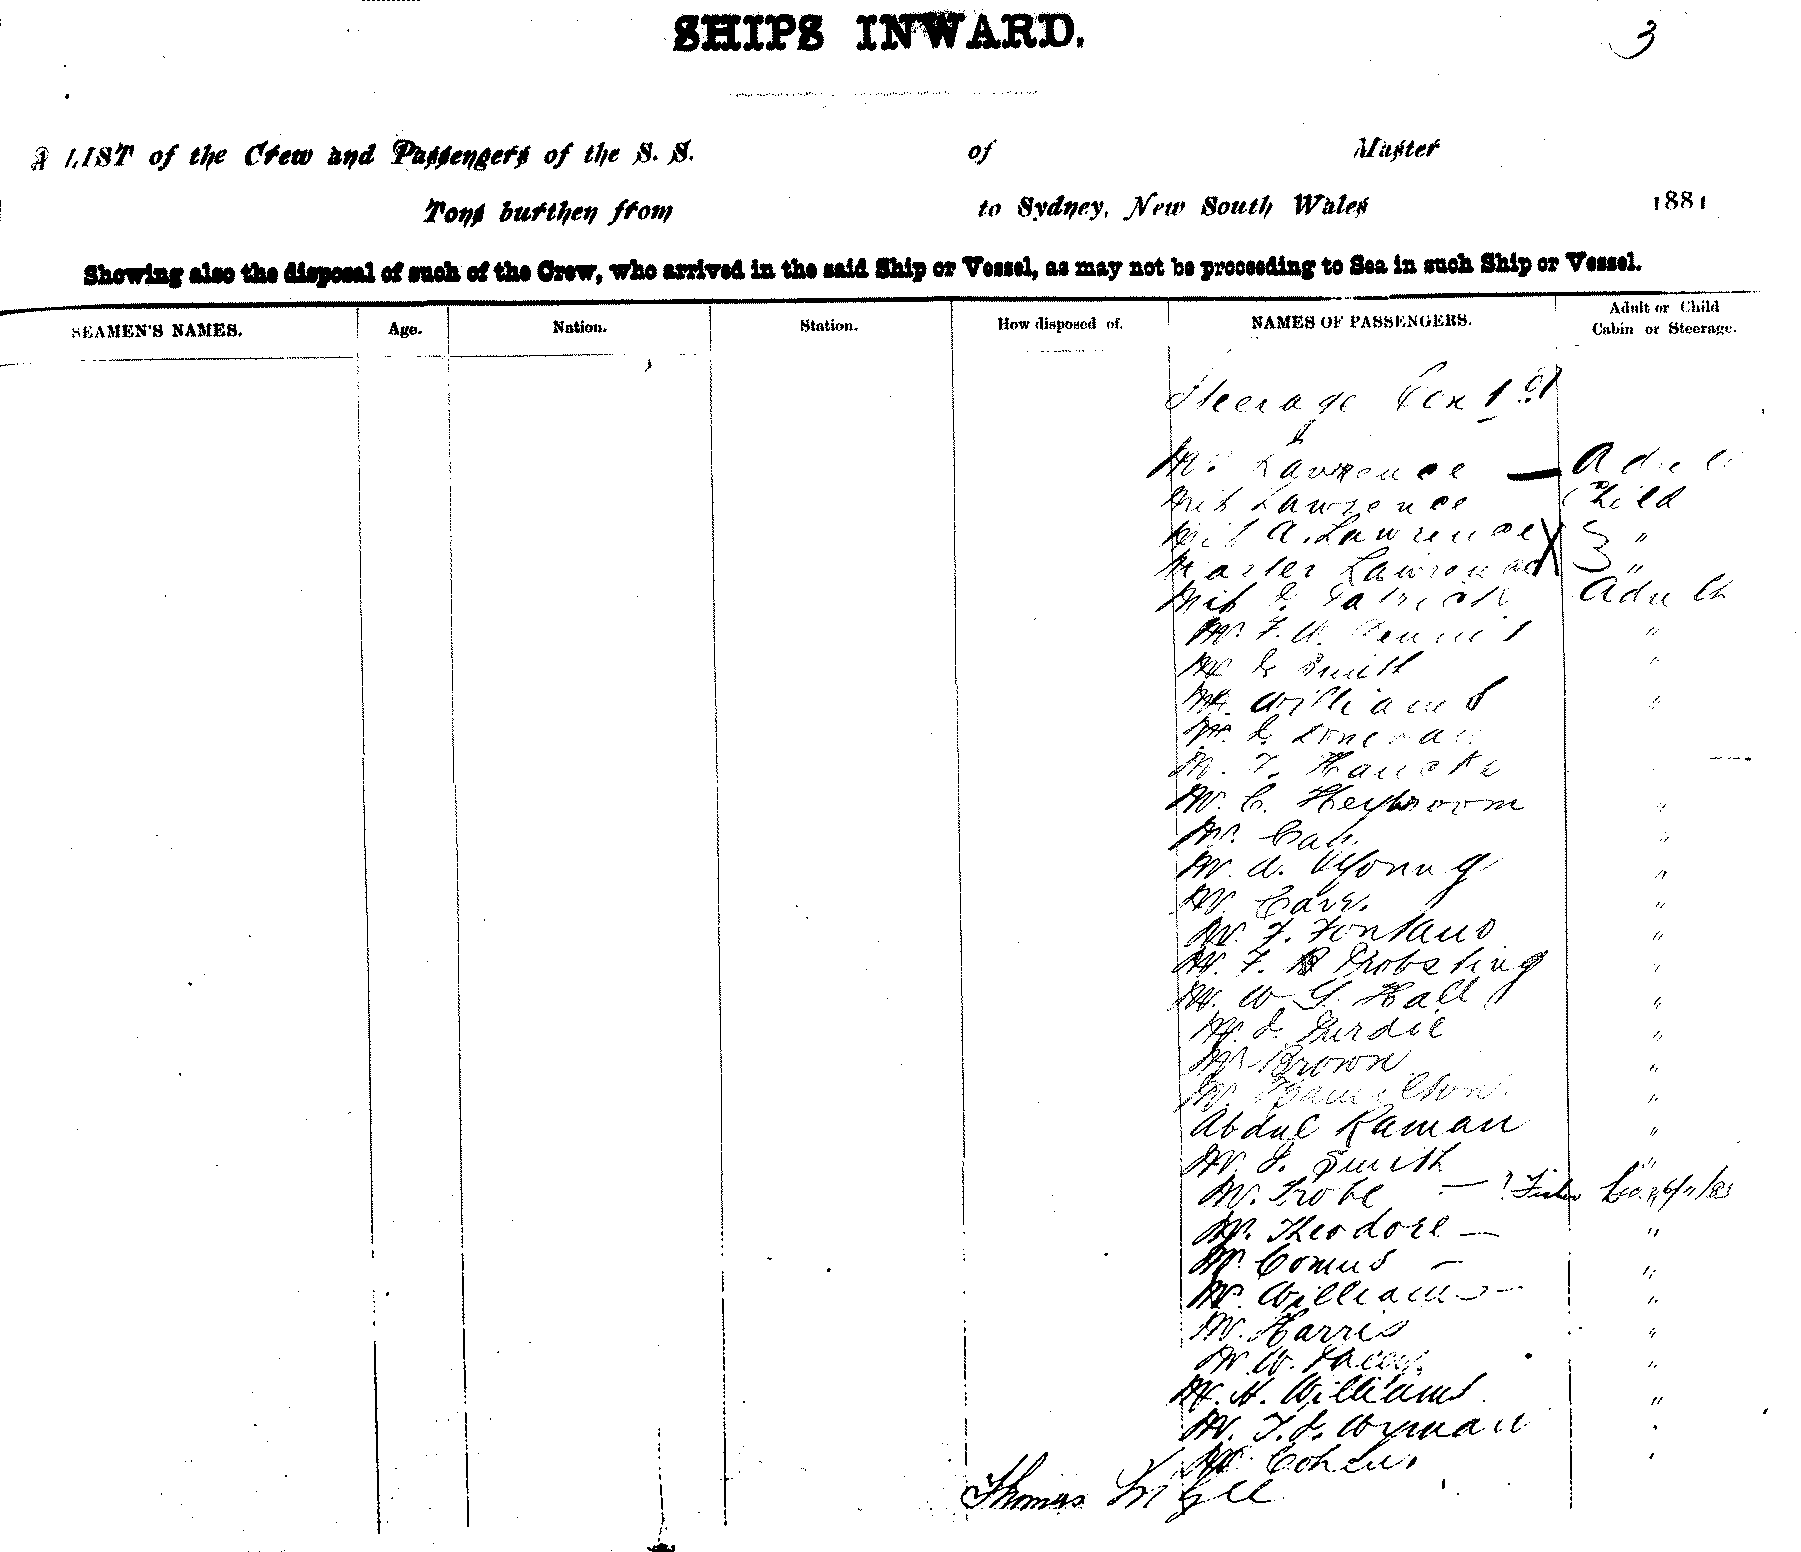 SHIPS INWARD.
3
A LIST of the Crew and Passengers of the S. S. of Master
Tons burthen from to Sydney, New South Wales 1881
Showing also the disposal of such of the Crew, who arrived in the said Ship or Vessel, as may not be proceeding to Sea in such Ship or Vessel.
SEAMEN'S NAMES. Age. Nation. Station. How disposed of. NAMES OF PASSENGERS. Adult or Child Cabin or Steerage.
Steerage
Lawrence — Adult
Miss Lawrence Child
Miss A. Lawrence "
Master Lawrence "
Miss Patrick Adult
Mr. F. W. Dennis "
Mr J. Smith "
Mr. Williams "
Mr.
Mr. Haucke
Mr. C. Heybroom "
Mr. "
Mr. A. Young "
Mr Carr. "
Mr. F. Fontano "
Mr. F. B Probsting "
Mr. W G. Hall "
Mr. J. Purdie "
Mr Brown "
Mr. Hamilton "
Abdul Raman "
Mr. J. Smith "
Mr. Probe —
Mr. Theodore — "
Mr. Comus — "
Mr. Williams — "
Mr. Harris "
Mr W. "
Mr. H. Williams "
Mr. T. J. Wyman "
Mr Cohen.
Thomas